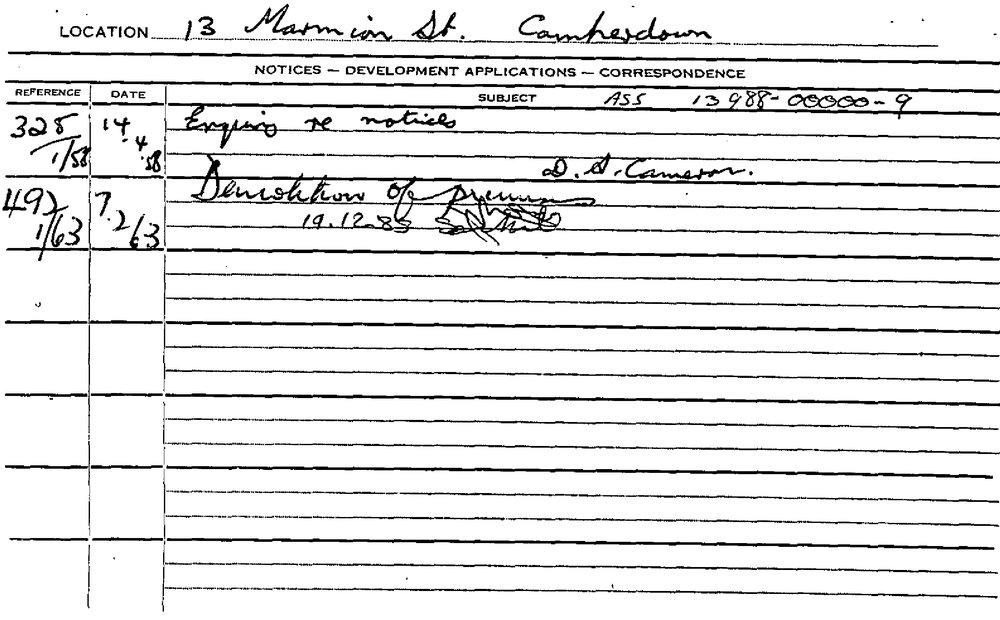 LOCATION 13 Marmion St. Camperdown
NOTICES — DEVELOPMENT APPLICATIONS — CORRESPONDENCE
REFERENCE DATE SUBJECT ASS 13988-00000-9
328 14 Enquiry re notices
1/58 .4
.58 D. S. Cameron.
492 7. Demolition of premises
1/63 2/63 19.12.85